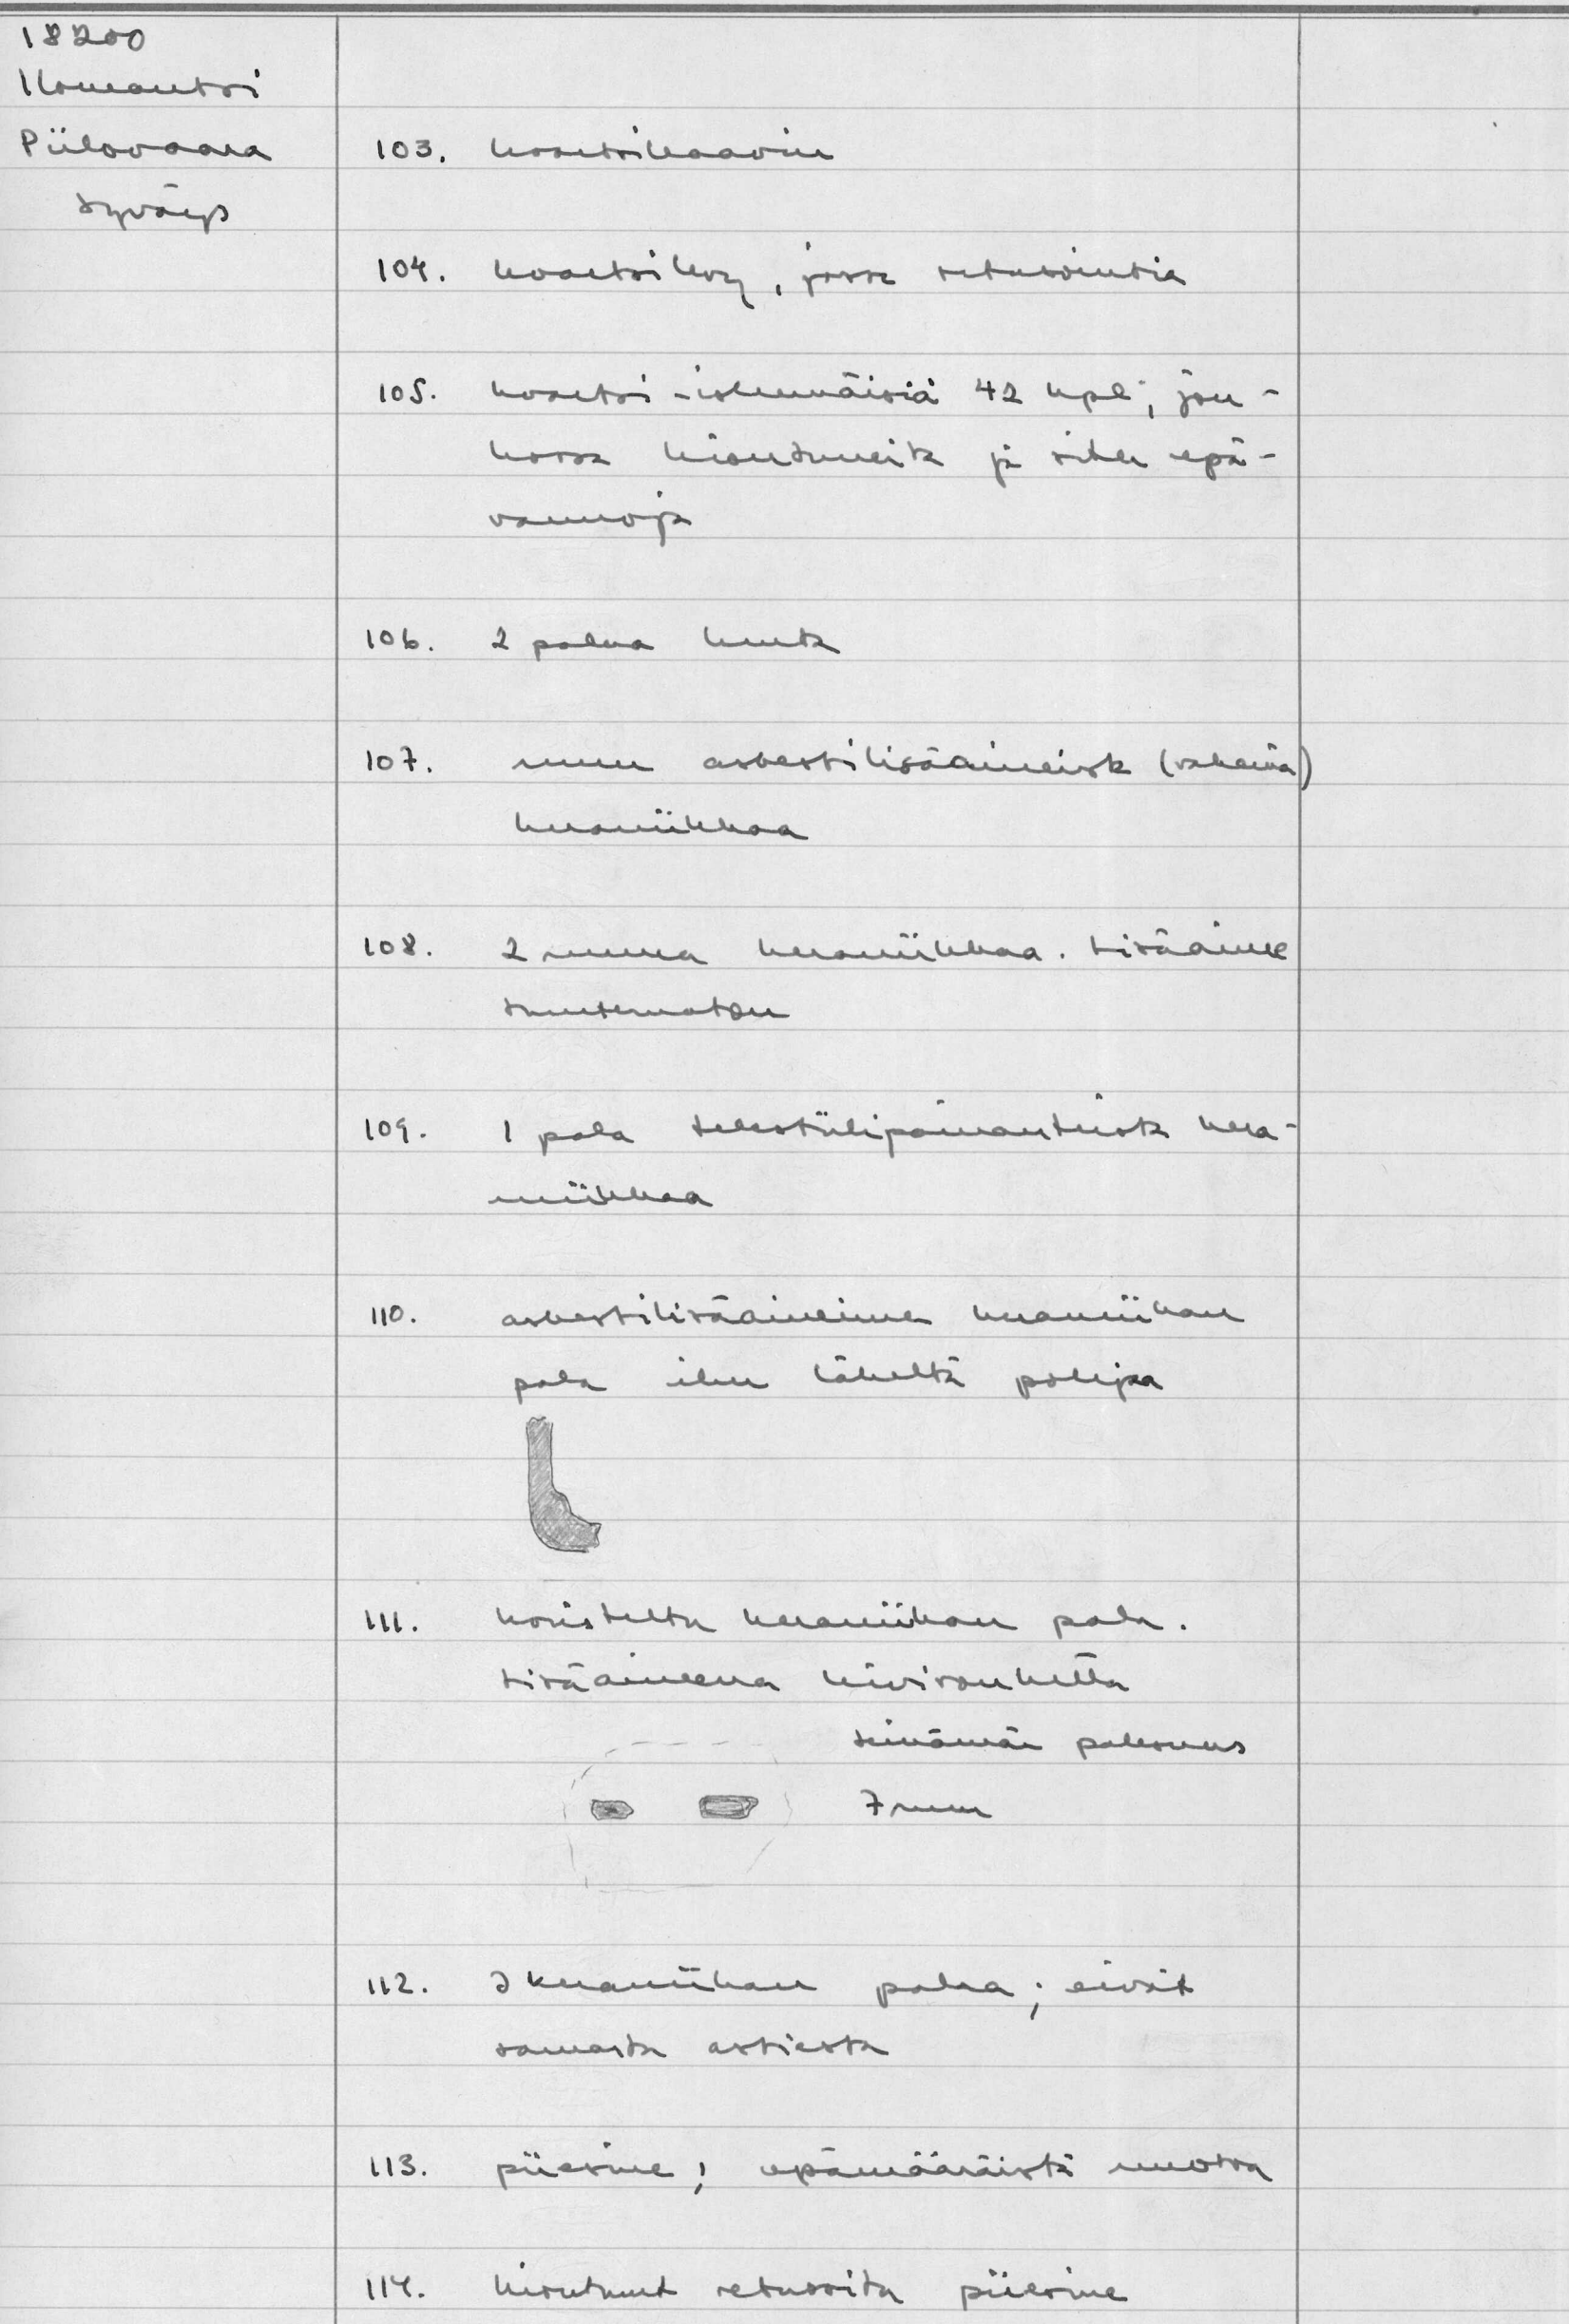 18200
Ilomantsi
Piilovaara
Syväys
103. kvartsikaavin
104. kvartsiydin, jossa retusointia
105. kvartsi-iskennäisiä 42 kpl; jou-
kossa hioutuneita ja siten epä-
varmoja
106. 2 palaa luuta
107. muru asbestilisäaineista (vaaleaa)
keramiikkaa
108. 2 murua keramiikkaa. Lisäaine
tuntematon
109. 1 pala tekstiilipainanteista kera-
miikkaa
110. asbestilisäaineinen keramiikan
pala ihan läheltä pohjaa
111. koristeltu keramiikan pala.
Lisäaineena kivirouhetta
seinämän paksuus
7 mm
112. 2 keramiikan palaa; eivät
samasta astiasta
113. piiesine; epämääräistä muotoa
114. hioutunut retusoitu piiesine